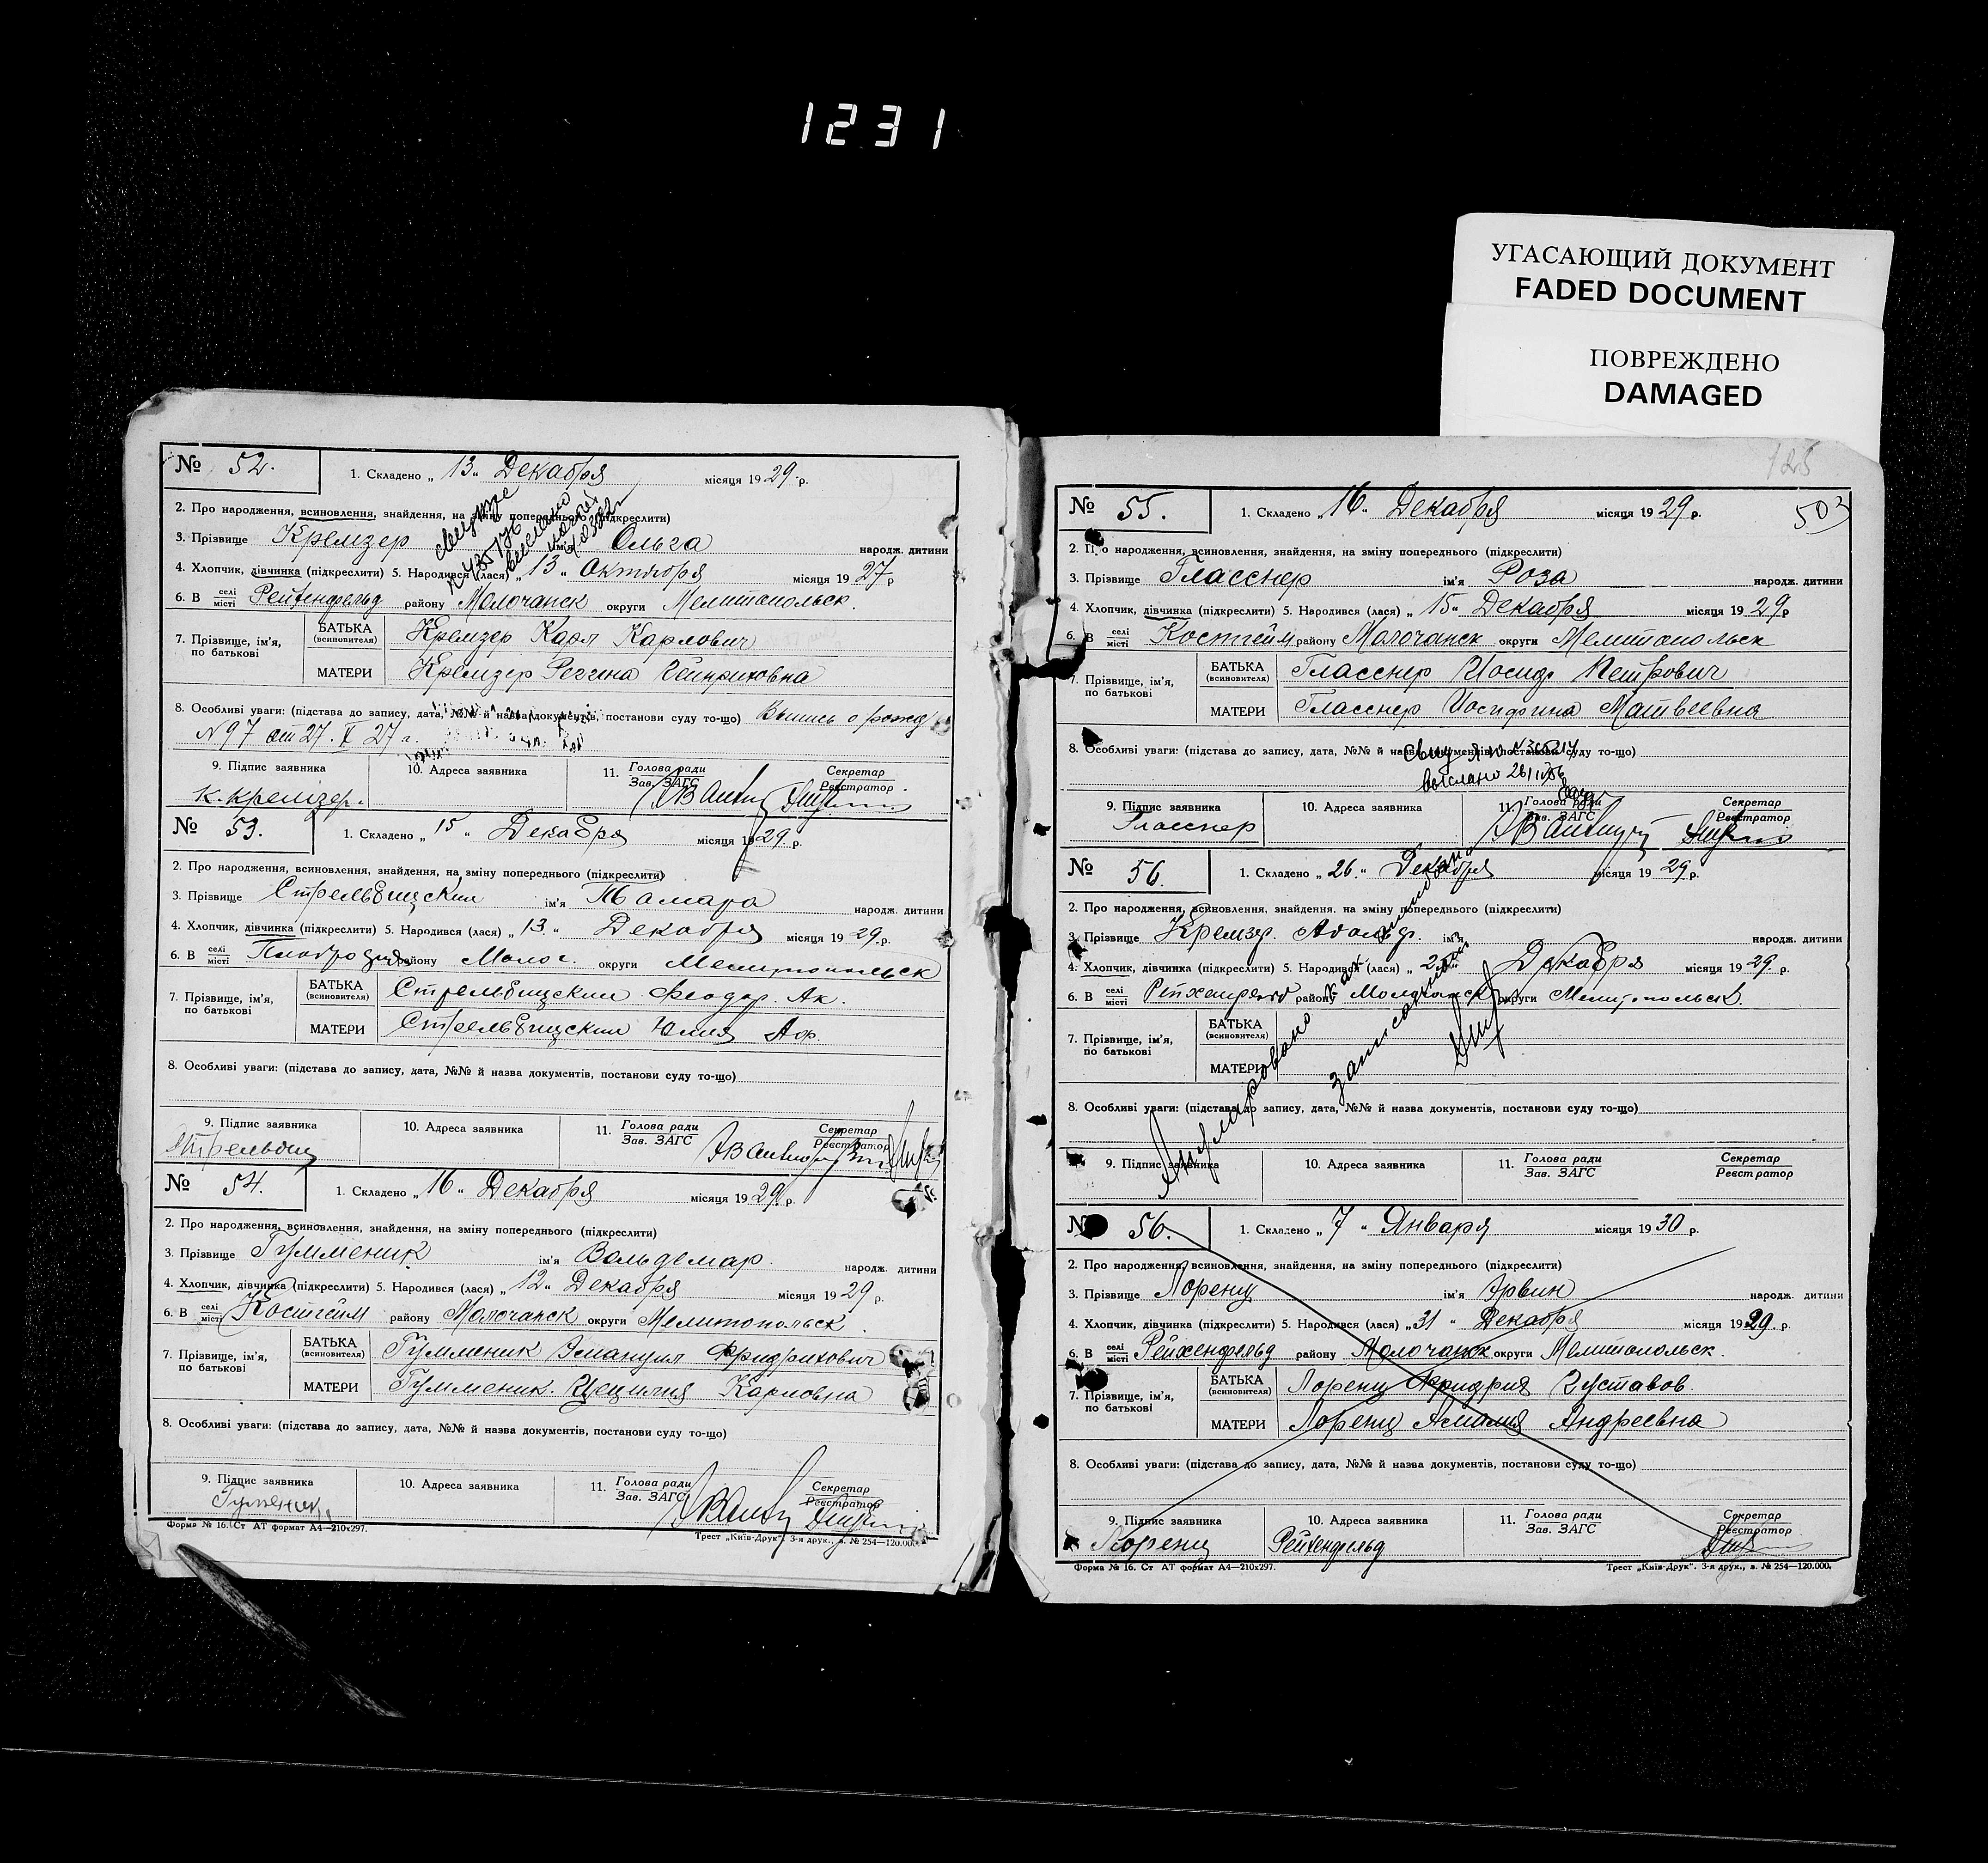 1231
УГАСАЮЩИЙ ДОКУМЕНТ
FADED DOCUMENT
ПОВРЕЖДЕНО
DAMAGED
№ 52.
1. Складено „ 13 " Декабря місяця 1929 р.
2. Про народження, всиновлення, знайдення, на зміну попереднього (підкреслити)
3. Прізвище Кремзер ім'я Ольга народж. дитини
4. Хлопчик, дівчинка (підкреслити) 5. Народився (лася) „ 13 " Октября місяця 1927 р
6. В селі місті Рейхенфельд району Молочанск округи Мелитопольск.
7. Прізвище, ім'я, по батькові
БАТЬКА (всиновителя) Кремзер Карл Карлович
МАТЕРИ Кремзер Регина Генриховна
8. Особливі уваги: (підстава до запису, дата, №№ й назва документів, постанови суду то-що) Выпись о рожд
№97 от 27. X 27 г.
9. Підпис заявника
К. Кремзер.
10. Адреса заявника
11. Голова ради Зав. ЗАГС
Секретар Реєстратор
№ 53.
1. Складено „ 15 " Декабря місяця 1929 р.
2. Про народження, всиновлення, знайдення, на зміну попереднього (підкреслити)
3. Прізвище Стрельбицкий ім'я Тамара народж. дитини
4. Хлопчик, дівчинка (підкреслити) 5. Народився (лася) „ 13 " Декабря місяця 1929 р.
6. В селі місті району Молоч. округи Мелитопольск
7. Прізвище, ім'я, по батькові
БАТЬКА (всиновителя) Стрельбицкий Феодор. Ак.
МАТЕРИ Стрельбицкий Юлия Аф.
8. Особливі уваги: (підстава до запису, дата, №№ й назва документів, постанови суду то-що)
9. Підпис заявника
10. Адреса заявника
11. Голова ради Зав. ЗАГС
Секретар Реєстратор
№ 54.
1. Складено „ 16 " Декабря місяця 1929 р.
2. Про народження, всиновлення, знайдення, на зміну попереднього (підкреслити)
3. Прізвище Гумменик ім'я Вольдемар. народж. дитини
4. Хлопчик, дівчинка (підкреслити) 5. Народився (лася) „ 12 " Декабря місяця 1929 р.
6. В селі місті Костгейм району Молочанск округи Мелитопольск
7. Прізвище, ім'я, по батькові
БАТЬКА (всиновителя) Гумменик Эмануил Фридрихович
МАТЕРИ Гумменик. Цецилия Карловна
8. Особливі уваги: (підстава до запису, дата, №№ й назва документів, постанови суду то-що)
9. Підпис заявника
10. Адреса заявника
11. Голова ради Зав. ЗАГС
Секретар Реєстратор
Форма № 16. Ст АТ формат А4—210х297.
Трест „Київ-Друк". 3-я друк., з. № 254—120.000.
125
503
№ 55.
1. Складено „ 16 " Декабря місяця 1929 р.
2. Про народження, всиновлення, знайдення, на зміну попереднього (підкреслити)
3. Прізвище Гласснер ім'я Роза народж. дитини
4. Хлопчик, дівчинка (підкреслити) 5. Народився (лася) „ 15 " Декабря місяця 1929 р
6. В селі місті Костгейм району Молочанск округи Мелитопольск
7. Прізвище, ім'я, по батькові
БАТЬКА (всиновителя) Гласснер Иосиф Петрович
МАТЕРИ Гласснер Иосифина Матвеевна
8. Особливі уваги: (підстава до запису, дата, №№ й назва документів, постанови суду то-що)
выслано
9. Підпис заявника
Гласснер
10. Адреса заявника
11. Голова ради Зав. ЗАГС
Секретар Реєстратор
№ 56.
1. Складено „ 26 " Декабря місяця 1929 р.
2. Про народження, всиновлення, знайдення, на зміну попереднього (підкреслити)
3. Прізвище Кремзер. Адольф. ім'я народж. дитини
4. Хлопчик, дівчинка (підкреслити) 5. Народився (лася) Декабря місяця 1929 р.
6. В селі місті району Молочанск округи Мелитопольск.
7. Прізвище, ім'я, по батькові
БАТЬКА (всиновителя)
МАТЕРИ
Анулировано как записанный
8. Особливі уваги: (підстава до запису, дата, №№ й назва документів, постанови суду то-що)
9. Підпис заявника
10. Адреса заявника
11. Голова ради Зав. ЗАГС
Секретар Реєстратор
№ 56.
1. Складено „ 7 " Января місяця 1930 р.
2. Про народження, всиновлення, знайдення, на зміну попереднього (підкреслити)
3. Прізвище Лоренц ім'я Эрвин народж. дитини
4. Хлопчик, дівчинка (підкреслити) 5. Народився (лася) „ 31 " Декабря місяця 1929 р.
6. В селі місті Рейхенфельд району Молочанск округи Мелитопольск.
7. Прізвище, ім'я, по батькові
БАТЬКА (всиновителя) Лоренц Фридрих Густавов.
МАТЕРИ Лоренц Амалия Андреевна
8. Особливі уваги: (підстава до запису, дата, №№ й назва документів, постанови суду то-що)
9. Підпис заявника
Лоренц
10. Адреса заявника
Рейхенфельд
11. Голова ради Зав. ЗАГС
Секретар Реєстратор
Форма № 16. Ст АТ формат А4—210х297.
Трест „Київ-Друк". 3-я друк., з. № 254—120.000.